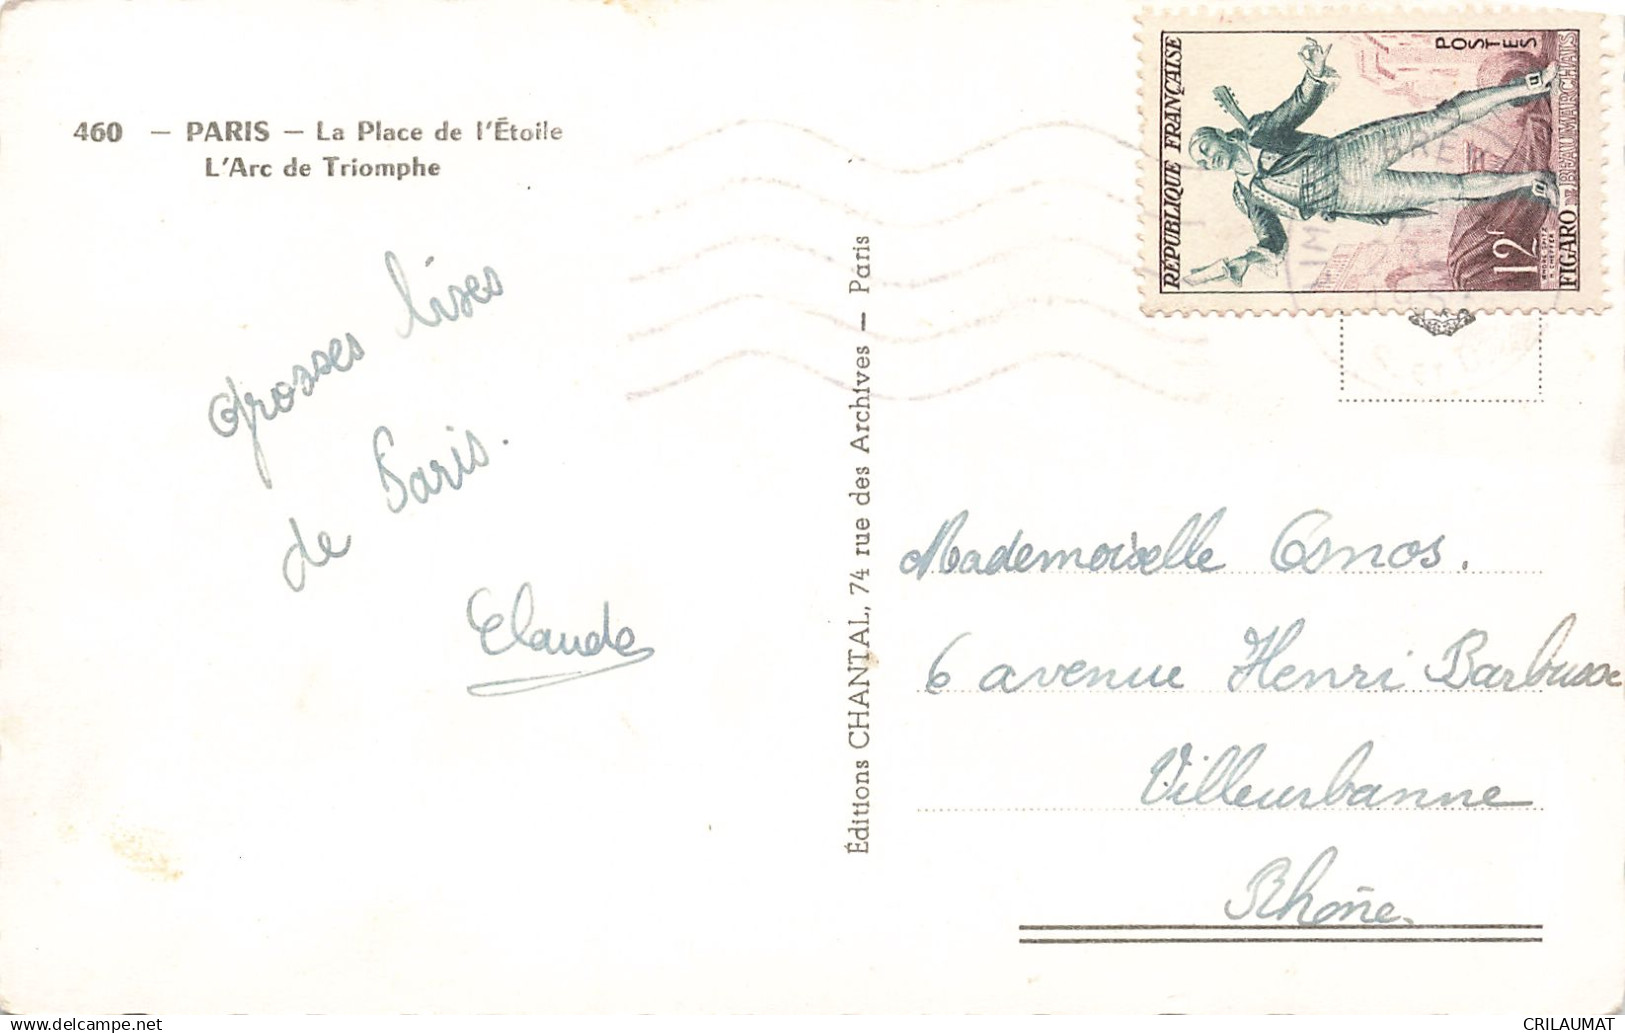 460 — PARIS — La Place de l'Étoile
L'Arc de Triomphe
Grosses bises
de Paris.
Claude
Éditions CHANTAL, 74 rue des Archives — Paris
RÉPUBLIQUE FRANÇAISE
POSTES
12F
FIGARO - BEAUMARCHAIS
Mademoiselle Osmos.
6 avenue Henri Barbusse
Villeurbanne
Rhône
CRILAUMAT